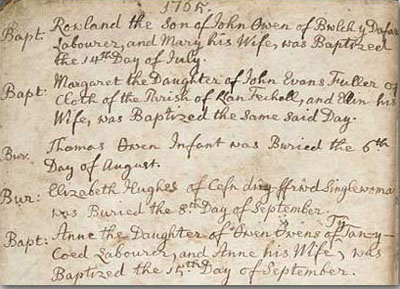 1765.
Bapt: Rowland the son of John Owen of Bwlch y Dafar
Labourer, and Mary his Wife, was Baptized
the 14th Day of July.
Bapt: Margaret the Daughter of John Evans Fuller of
Cloth of the Parish of Llan Fechell, and Ellin his
Wife, was Baptized the same said Day.
Bur: Thomas Owen Infant was Buried the 6th
Day of August.
Bur: Elizabeth Hughes of Cefn ffrwd Singlewoman
was Buried the 8th Day of September.
Bapt: Anne the Daughter of Owen Owens of Ty
Coed Labourer, and Anne his Wife, was
Baptized the 15th Day of September.